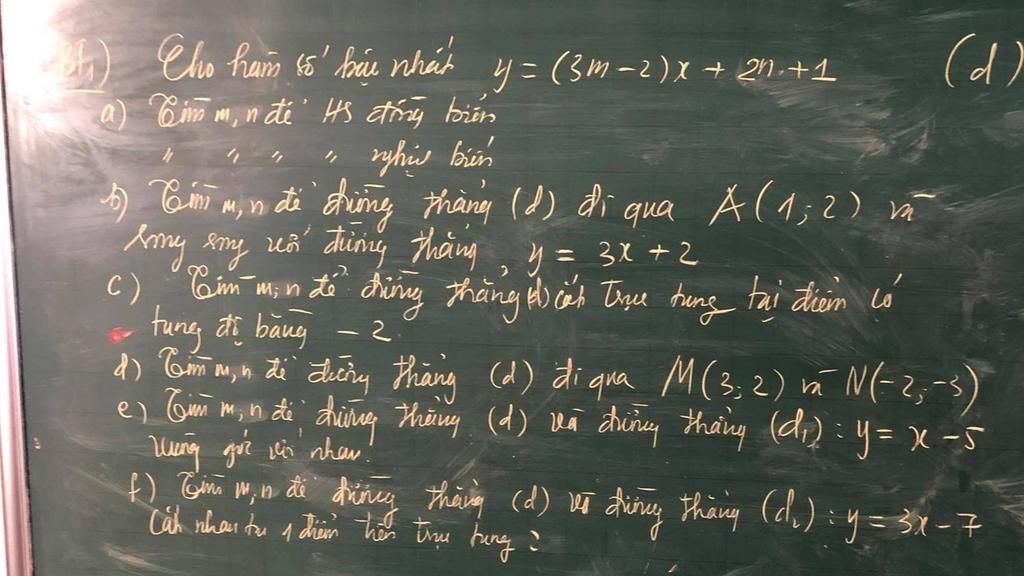 Bt1) Cho hàm số bậc nhất y = (3m - 2)x + 2n + 1 (d)
a) Tìm m, n để HS đồng biến
" " " " nghịc biến
b) Tìm m, n để đường thẳng (d) đi qua A(1; 2) và
song song với đường thẳng y = 3x + 2
c) Tìm m, n để đường thẳng (d) cắt trục tung tại điểm có
tung độ bằng - 2.
d) Tìm m, n để đường thẳng (d) đi qua M(3; 2) và N(-2; -3)
e) Tìm m, n để đường thẳng (d) và đường thẳng (d1) : y = x - 5
vuông góc với nhau.
f) Tìm m, n để đường thẳng (d) và đường thẳng (d2) : y = 3x - 7
Cắt nhau tại 1 điểm trên trục tung :